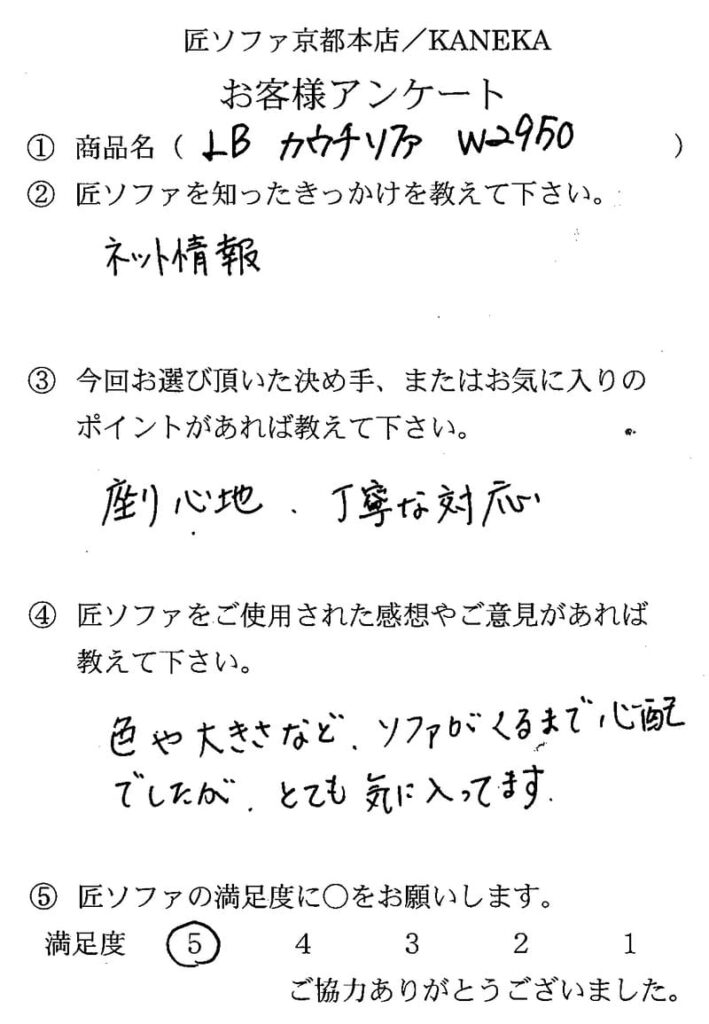 匠ソファ京都本店／KANEKA
お客様アンケート
① 商品名（ LB カウチソファ W2950 ）
② 匠ソファを知ったきっかけを教えて下さい。
ネット情報
③ 今回お選び頂いた決め手、またはお気に入りの
ポイントがあれば教えて下さい。
座り心地、丁寧な対応
④ 匠ソファをご使用された感想やご意見があれば
教えて下さい。
色や大きさなど、ソファがくるまで心配
でしたが、とても気に入ってます.
⑤ 匠ソファの満足度に〇をお願いします。
満足度 5 4 3 2 1
ご協力ありがとうございました。